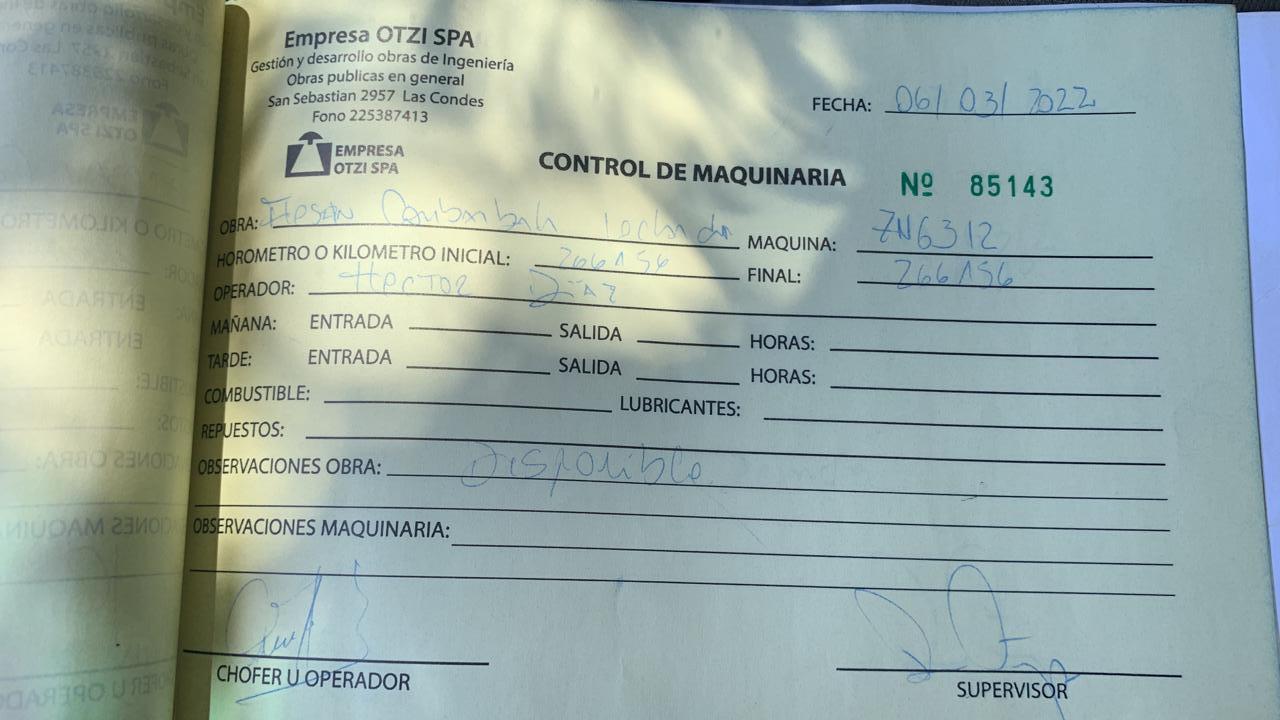 Empresa OTZI SPA
Gestión y desarrollo obras de Ingeniería
Obras publicas en general
San Sebastian 2957 Las Condes
Fono 225387413
EMPRESA
OTZI SPA
FECHA: 06/03/2022
CONTROL DE MAQUINARIA
Nº 85143
OBRA: MAQUINA: ZN6312
HOROMETRO O KILOMETRO INICIAL: 266156 FINAL: 266156
OPERADOR: Hector Diaz
MAÑANA: ENTRADA SALIDA HORAS:
TARDE: ENTRADA SALIDA HORAS:
COMBUSTIBLE: LUBRICANTES:
REPUESTOS:
OBSERVACIONES OBRA: Disponible
OBSERVACIONES MAQUINARIA:
CHOFER U OPERADOR
SUPERVISOR